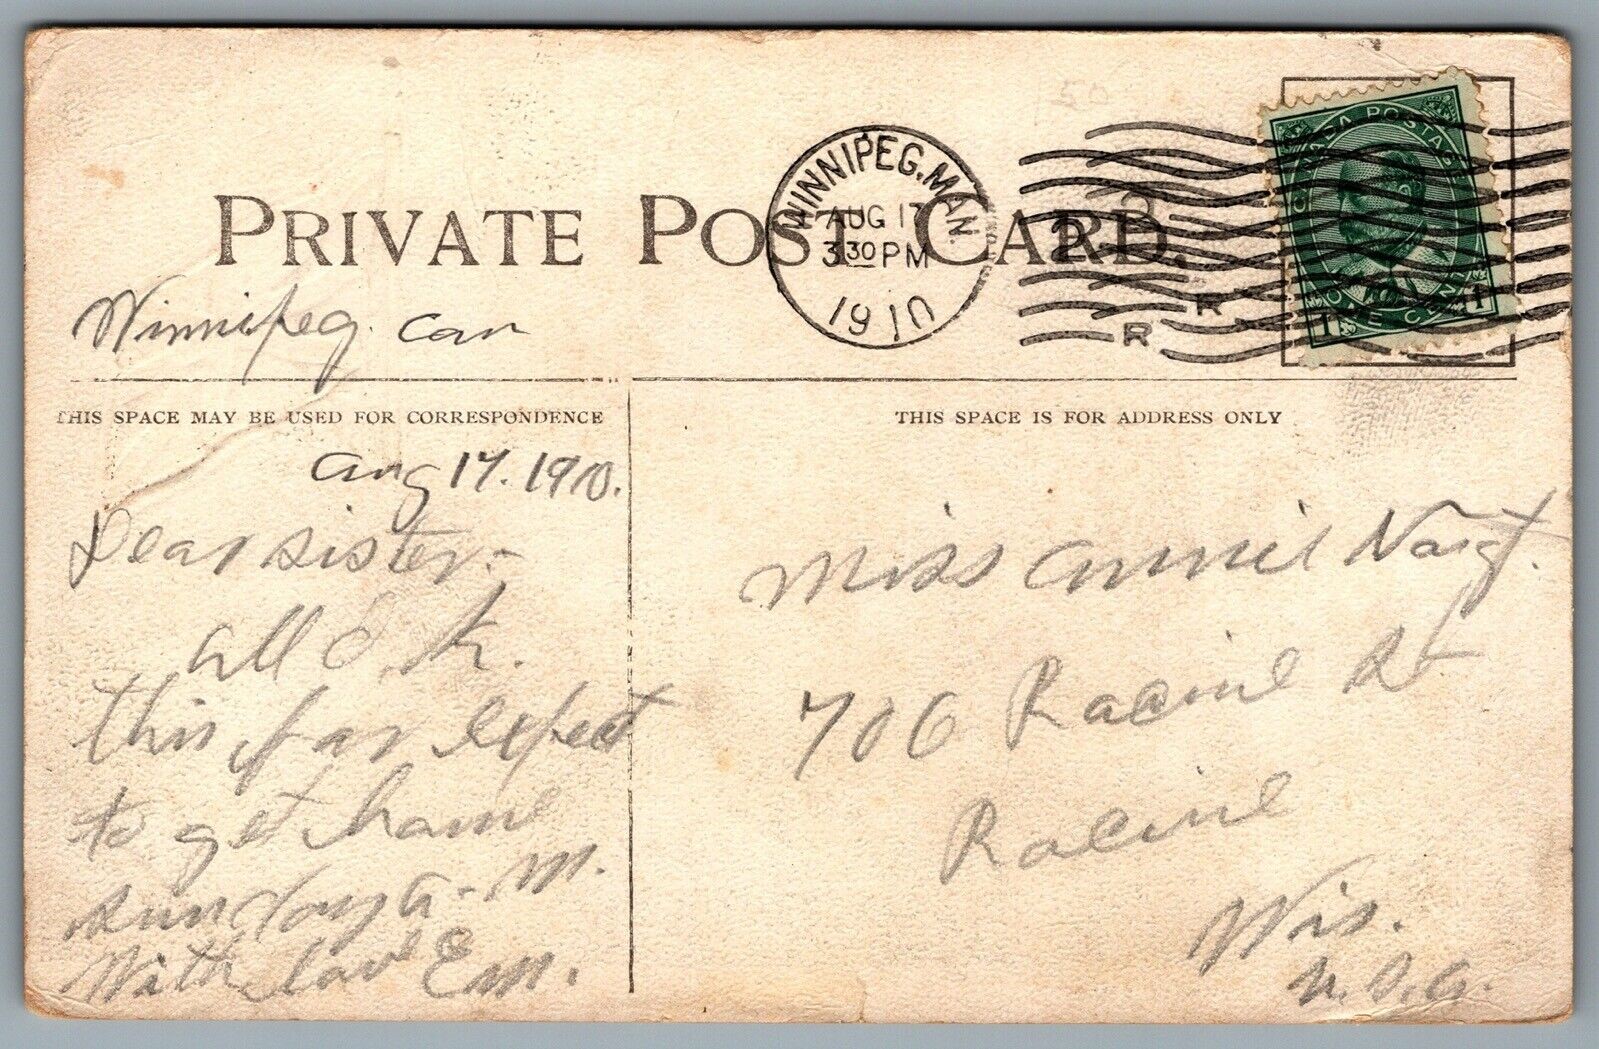 PRIVATE POST CARD.
WINNIPEG, MAN.
AUG 17
3 30 PM
1910
R
R
CANADA POSTAGE
1 ONE CENT 1
Winnipeg. Can
THIS SPACE MAY BE USED FOR CORRESPONDENCE
THIS SPACE IS FOR ADDRESS ONLY
Aug 17. 1910.
Dear sister-
all O.K.
this far expect
to get home
Sunday A-M.
With love Em.
Miss Annie
706 Racine St
Racine
Wis.
U.S.A.